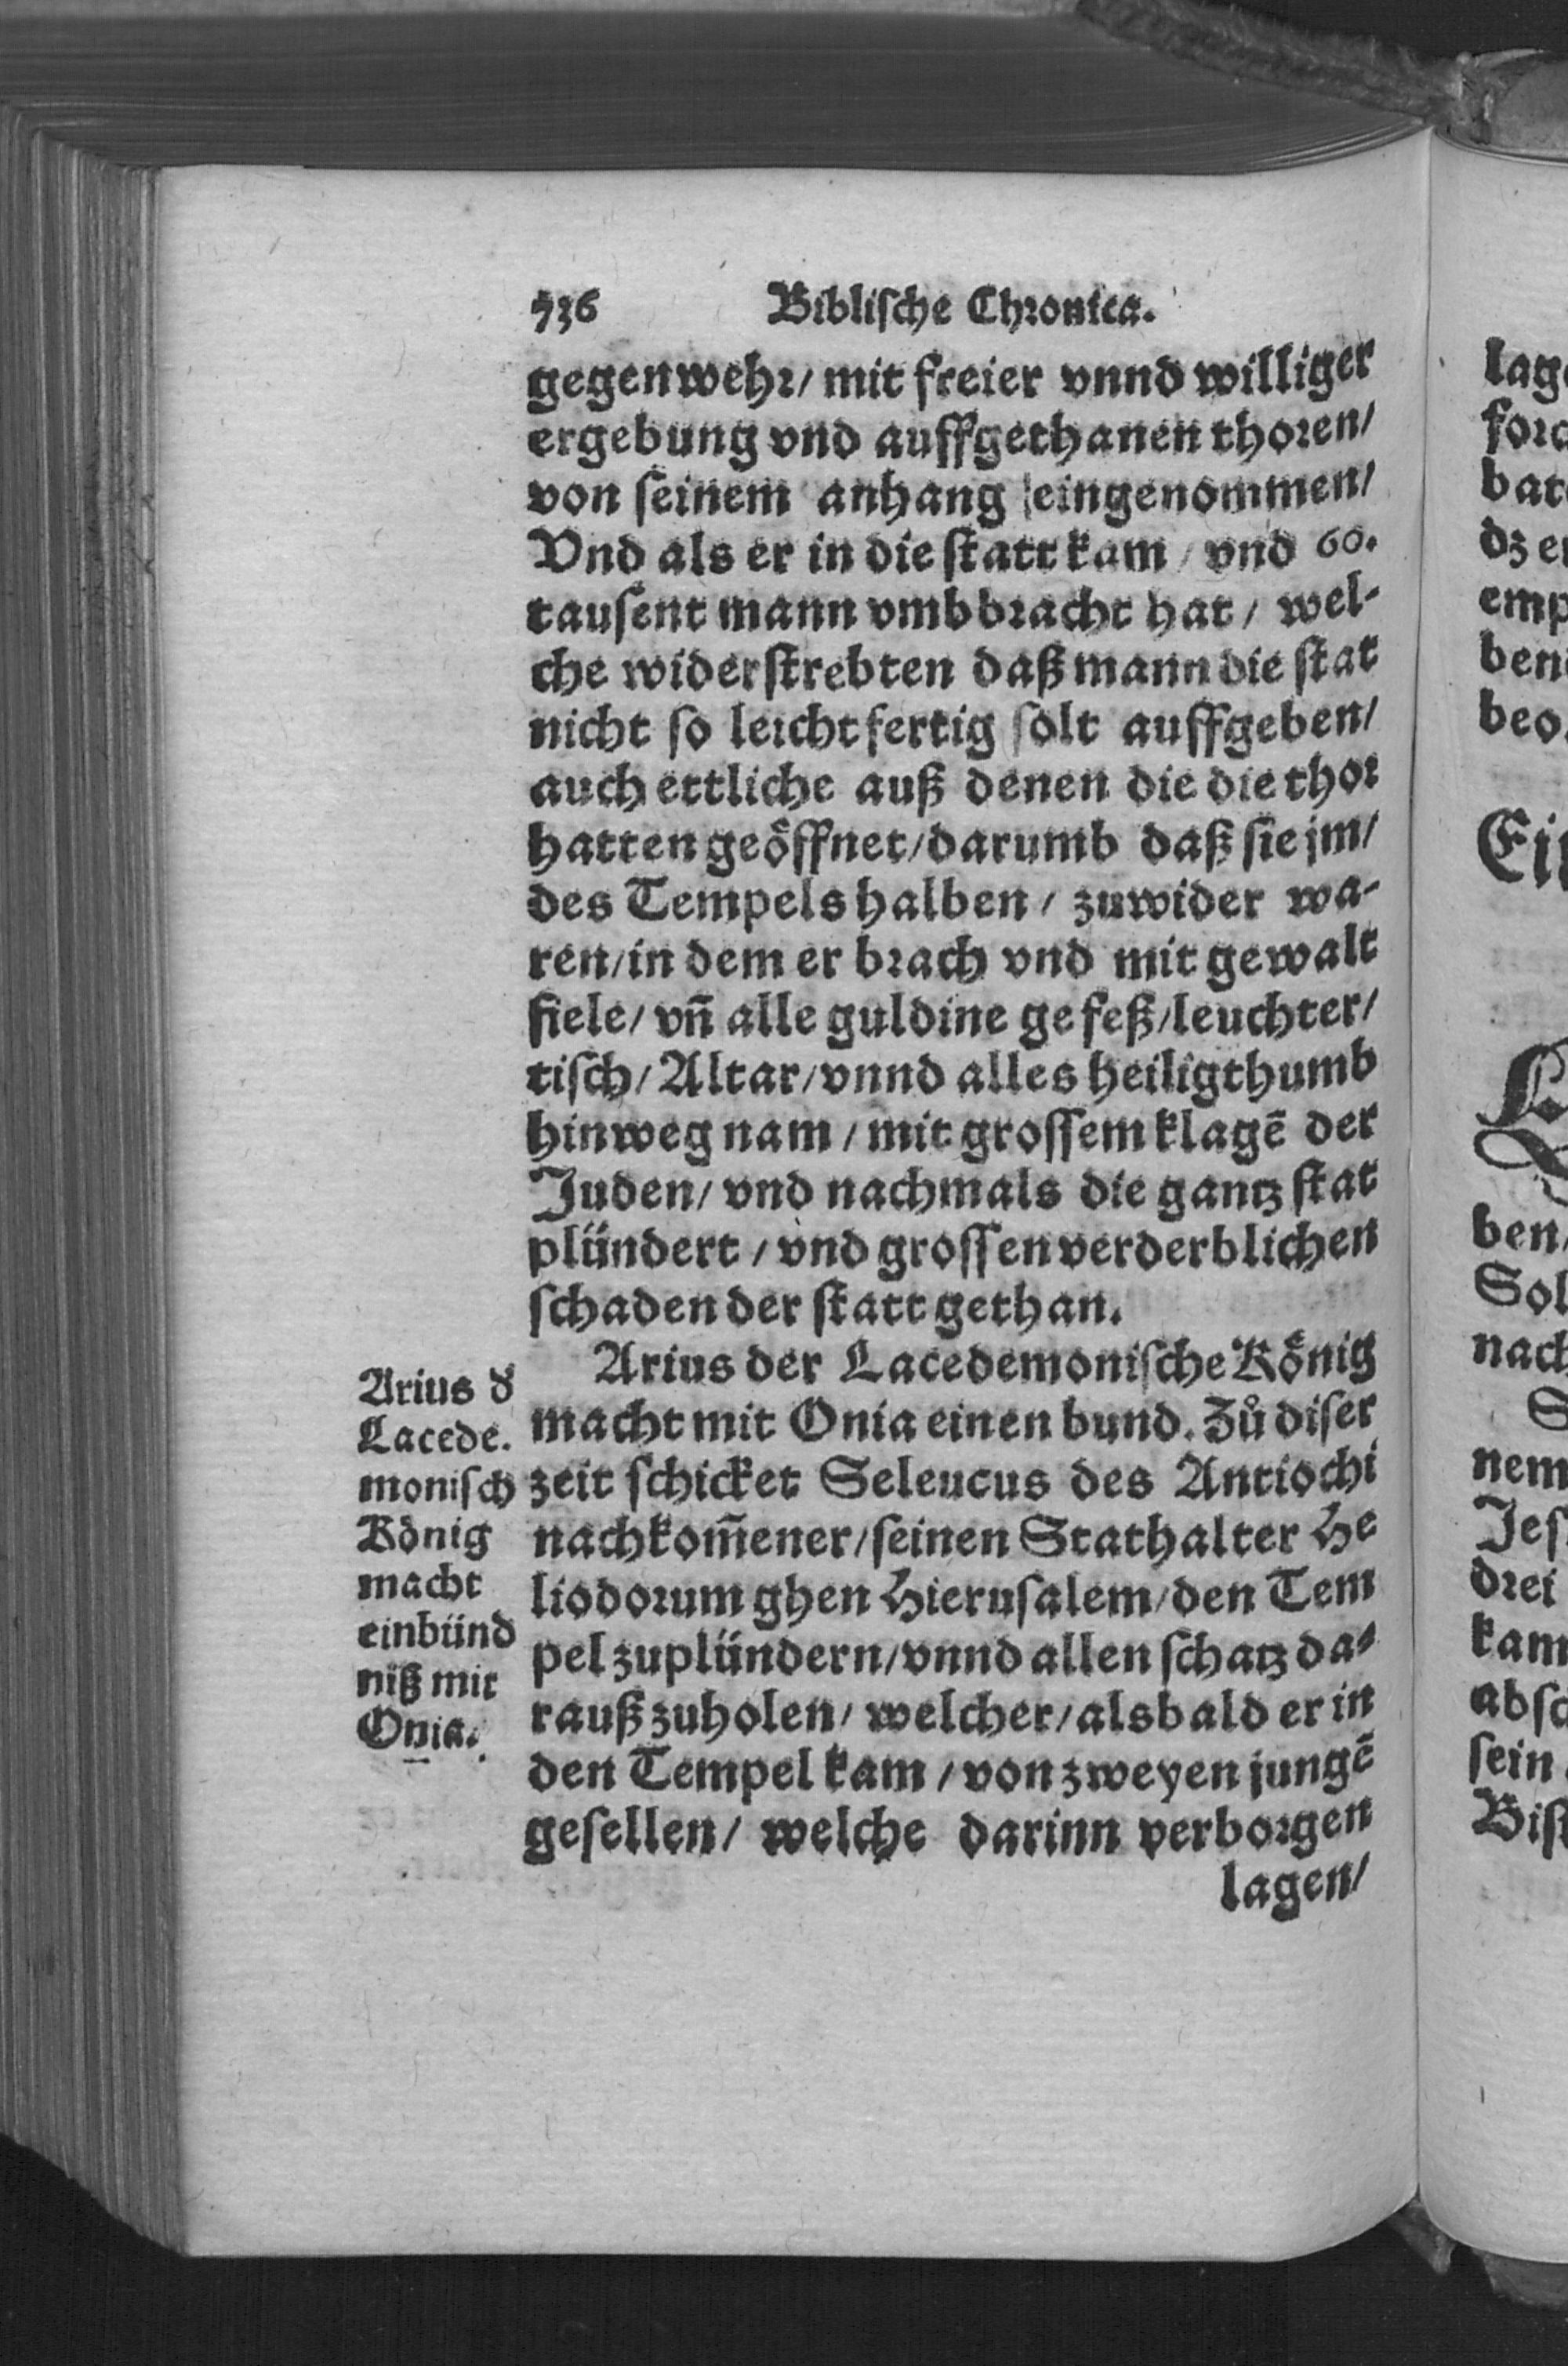 536 Bibliſche Chronica.
gegenwehr/ mit freier vnnd williger
ergebung vnd auffgethanen thoren/
von ſeinem anhang eingenommen/
Vnd als er in die ſtatt kam / vnd 60.
tauſent mann vmbbracht hat / wel-
che widerſtrebten daß mann die ſtat
nicht ſo leichtfertig ſolt auffgeben/
auch ettliche auß denen die die thor
hatten geöffnet/darumb daß ſie jm/
des Tempels halben / zuwider wa-
ren/in dem er brach vnd mit gewalt
fiele/ vñ alle guldine gefeß/leuchter/
tiſch/ Altar/vnnd alles heiligthumb
hinweg nam / mit groſſem klagẽ der
Juden/ vnd nachmals die gantz ſtat
plündert / vnd groſſen verderblichen
ſchaden der ſtatt gethan.
Arius der Lacedemoniſche Kőnig
macht mit Onia einen bund. Zů diſer
zeit ſchicket Seleucus des Antiochi
nachkom̃ener/ſeinen Stathalter He
liodorum ghen Hieruſalem/den Tem
pel zuplündern/vnnd allen ſchatz da-
rauß zuholen/ welcher/alsbald er in
den Tempel kam / von zweyen jungẽ
geſellen/ welche darinn verborgen
lagen/
Arius d'
Lacede.
moniſch
König
macht
einbünd
niß mit
Onia.
lag
forc
bat
dz e
emp
ben
beo
Ei
ben/
Sol
nach
S
nem
Jeſ
drei
kam
abſc
ſein
Biſ